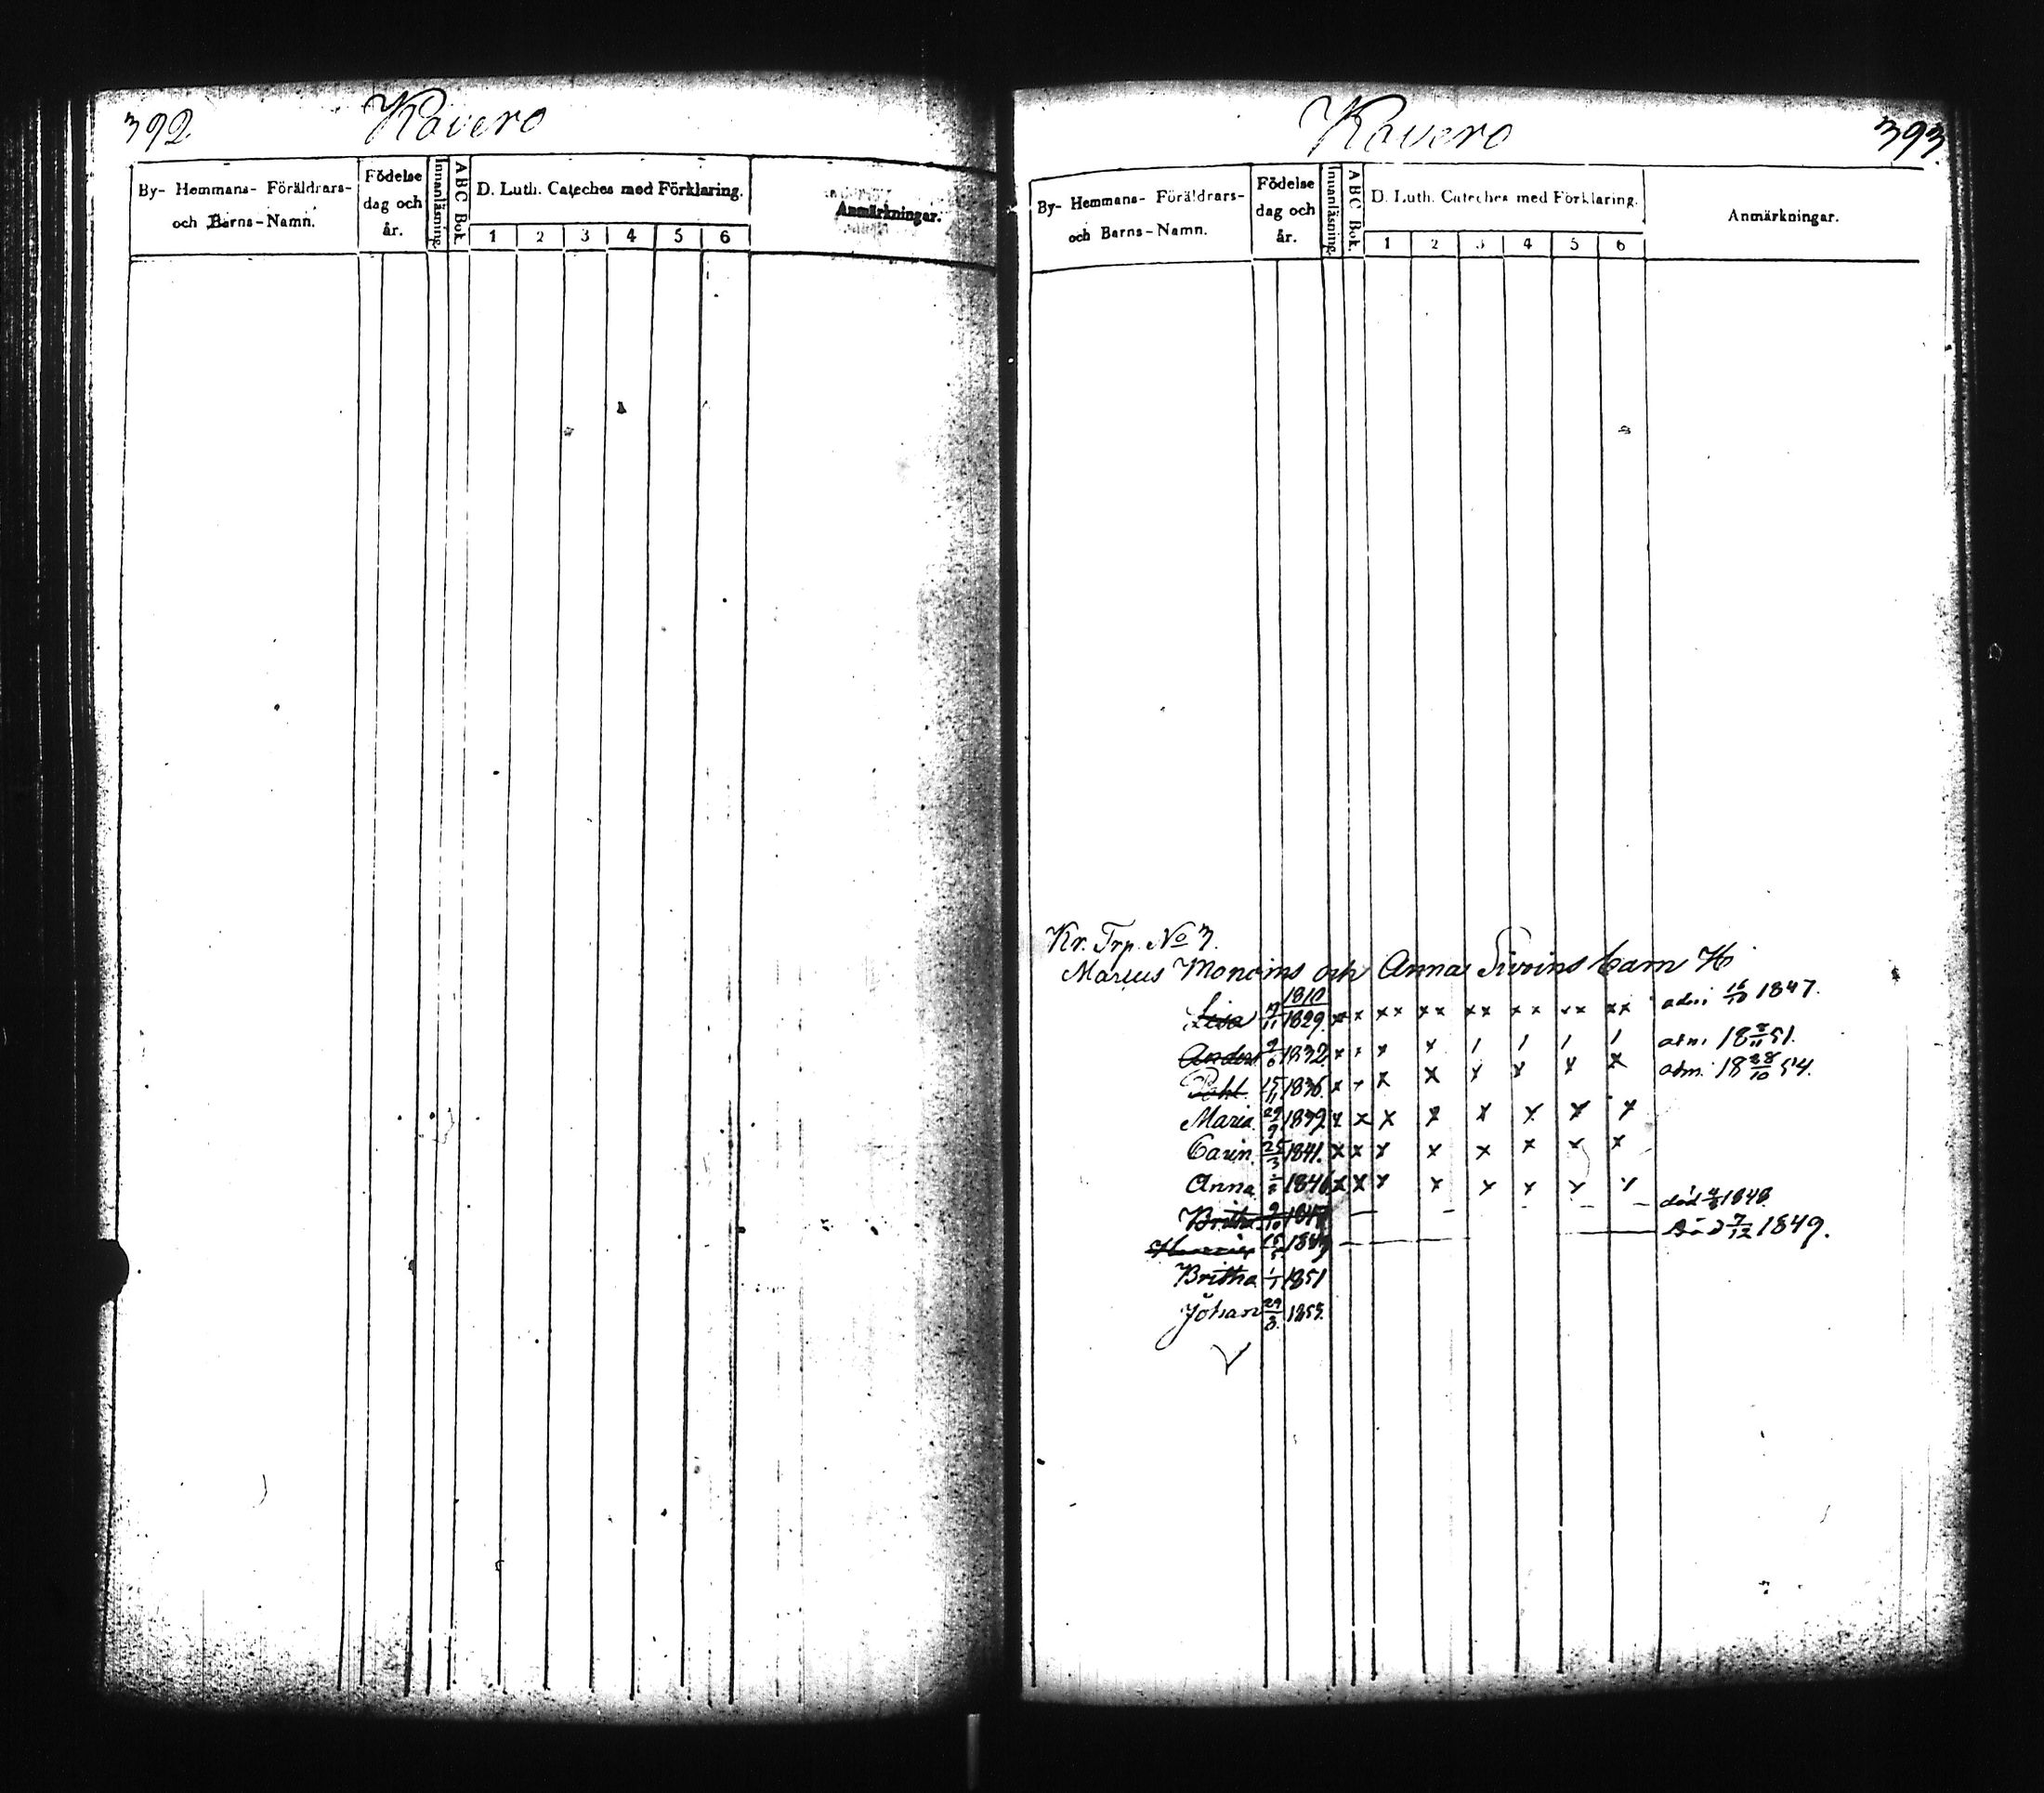 392 Kavero
By- Hemmans- Föräldrars- och Barns-Namn.
Födelse dag och år.
Innanläsning.
ABC Bok.
D. Luth. Cateches med Förklaring.
1 2 3 4 5 6
Anmärkningar.
Kavero 393
By- Hemmans- Föräldrars- och Barns-Namn.
Födelse dag och år.
Innanläsning.
ABC Bok.
D. Luth. Cateches med Förklaring.
1 2 3 4 5 6
Anmärkningar.
Kr. Trp. No 3.
Marcus Monoins och Anna barn
1810
Lisa 1829. x x xx xx xx xx xx xx 1847.
Anders 1832. x x x x / / / / adm. 1851.
Påhl 15/11 1836. x x x x x x x x adm. 18 28/10 54.
Maria 29/9 1839. x x x x x x x x
Carin 25/3 1841. x x x x x x x x
Anna 1846 x x x x x x x x
Britha 9/10 1847 död 1848
1849 död 7/12 1849.
Britha 1/1 1851
Johan 29/3 1855.